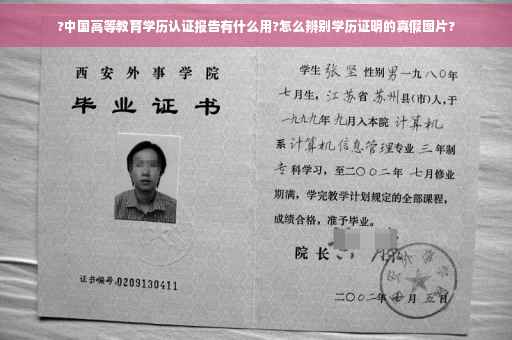 ?中国高等教育学历认证报告有什么用?怎么辨别学历证明的真假图片?
西安外事学院
毕业证书
证书编号:0209130411
学生 张坚 性别 男 一九八〇年
七月生，江苏省 苏州县(市)人,于
一九九九年 九月入本院 计算机
系 计算机信息管理专业 三 年制
专 科学习，至二〇〇二年 七月修业
期满，学完教学计划规定的全部课程，
成绩合格，准予毕业。
院长
二〇〇二年 月 五日